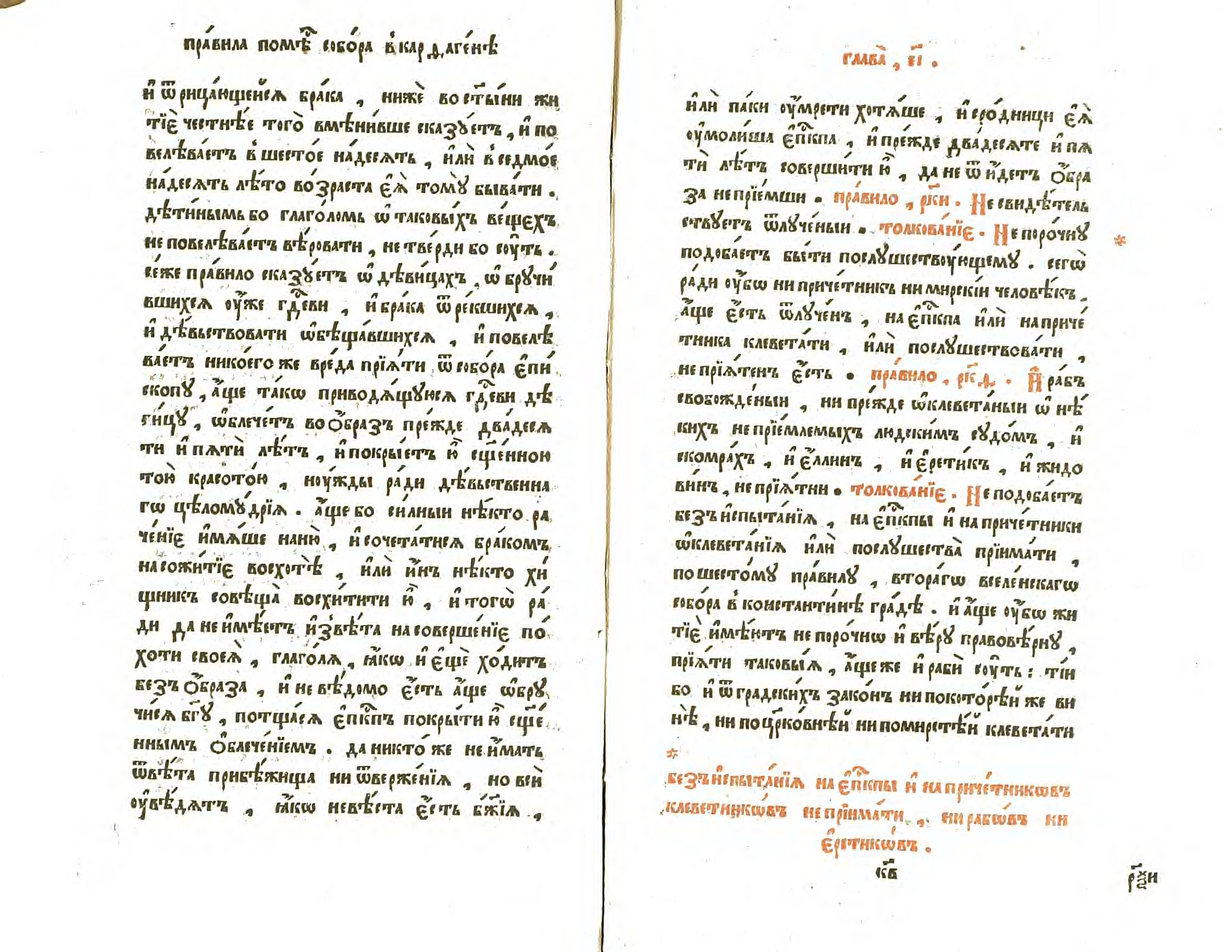 пра́вила помѣ́с собо́ра в̾кард̾аге́нѣ
и҆ ѿрица́ющейсѧ бра́ка , нижѐ во ст҃ы́ни жи
тїѐ честнѣ́е того̀ вмѣни́вше сказꙋ́етъ , и҆ по
велѣва́етъ в̾шесто́е на́десѧть , и҆лѝ в̾седмо́е
на́десѧть лѣ́то во́зраста є҆ѧ̀ томꙋ̀ быва́ти .
дѣ́тинымъ бо глаго́ломъ ѡ҆ таковы́хъ ве́щехъ
не повелѣва́етъ вѣ́ровати , не тве́рди бо сꙋ́ть .
се́же пра́вило сказꙋ́етъ ѡ҆ дѣви́цахъ , ѡ҆брꙋчи́
вшихсѧ оу҆́же гдⷭ҇еви , и҆ бра́ка ѿре́кшихсѧ ,
и҆ дѣ́вьствовати ѡ҆бѣща́вшихсѧ , и҆ повелѣ
ва́етъ никое́го же вре́да прїѧ́ти ѿ собо́ра є҆пи́
скопꙋ , а҆́ще та́кѡ приводѧ́щꙋюсѧ гдⷭ҇еви дѣ
ви́цꙋ , ѡ҆блече́тъ во ѻ҆́бразъ пре́жде два́десѧ
ти и҆ пѧтѝ лѣ́тъ , и҆ покры́етъ ю҆̀ сщ҃е́нною
то́ю красото́ю , нꙋ́жды ра́ди дѣ́вьственна
гѡ цѣломꙋ́дрїѧ . а҆́ще бо си́лный нѣ́кто ра
че́нїе и҆мѧ́ше на ню̀ , и҆ сочета́тисѧ бра́комъ
на сожи́тїе восхотѣ̀ , и҆лѝ и҆́нъ нѣ́кто хи́
щникъ совѣща̀ восхи́тити ю҆̀ , и҆ тогѡ̀ ра́
ди да не и҆мѣ́етъ и҆звѣ́та на соверше́нїе по́
хоти своеѧ̀ , глаго́лѧ , ꙗ҆́кѡ и҆ є҆щѐ хо́дитъ
без̾ ѻ҆́браза , и҆ не вѣ́домо є҆́сть а҆́ще ѡ҆брꙋ
чи́сѧ бг҃ꙋ , потща́сѧ є҆пⷭ҇кпъ покры́ти ю҆̀ сщ҃е́
ннымъ ѻ҆блече́нїемъ . да никто́ же не и҆́мать
ѿвѣ́та прибѣ́жища ни ѿверже́нїѧ , но всѝ
оу҆вѣ́дѧтъ , ꙗ҆́кѡ невѣ́ста є҆́сть бж҃їѧ ,
глава̀ , є҃і .
и҆лѝ па́ки оу҆мре́ти хотѧ́ше , и҆ сро́дницы є҆ѧ̀
оу҆моли́ша є҆пⷭ҇кпа , и҆ пре́жде два́десѧте и҆ пѧ
тѝ лѣ́тъ соверши́ти ю҆̀ , да не ѿи́детъ ѻ҆́бра
за не прїе́мши . пра́вило , рк҃и . Не свидѣ́тель
ствꙋетъ ѿлꙋче́ный . толкова́нїе . Не поро́чнꙋ
подоба́етъ бы́ти послꙋшествꙋ́ющемꙋ . сегѡ̀
ра́ди оу҆́бѡ ни приче́тникъ ни мирскі́й человѣ́къ ,
а҆́ще є҆́сть ѿлꙋче́нъ , на є҆пⷭ҇кпа и҆лѝ на приче́
тника клевета́ти , и҆лѝ послꙋ́шествовати ,
не прїѧ́тенъ є҆́сть . пра́вило , рк҃д . И҆ ра́бъ
свобожде́ный , ни пре́жде ѡ҆клевета́ный ѡ҆ нѣ́
кихъ не прїе́млемыхъ людски́мъ сꙋдо́мъ , и҆
скомра́хъ , и҆ є҆́ллинъ , и҆ є҆рети́къ , и҆ жидо
ви́нъ , не прїѧ́тни . толкова́нїе . Не подоба́етъ
без̾ и҆спыта́нїѧ , на є҆пⷭ҇кпы и҆ на приче́тники
ѡ҆клевета́нїѧ и҆лѝ послꙋ́шества прїима́ти ,
по шесто́мꙋ пра́вилꙋ , втора́гѡ вселе́нскагѡ
собо́ра в̾ константи́нѣ гра́дѣ . и҆ а҆́ще оу҆́бѡ жи
тїѐ и҆мѣ́ютъ не поро́чно и҆ вѣ́рꙋ правовѣ́рнꙋ ,
прїѧ́ти таковы́ѧ , а҆́ще же и҆ рабѝ сꙋ́ть : ті́и
бо и҆ ѿ гра́дскихъ зако́нъ ни по кото́рѣй же ви
нѣ̀ , ни по цр҃ко́внѣй ни по мирстѣ́й клевета́ти
*
*
без̾ и҆спыта́нїѧ на є҆пⷭ҇кпы и҆ на приче́тникѡвъ
клеветникѡ́въ не прїима́ти , ни рабѡ́въ ни
є҆ретикѡ́въ .
к҃в
рл҃и